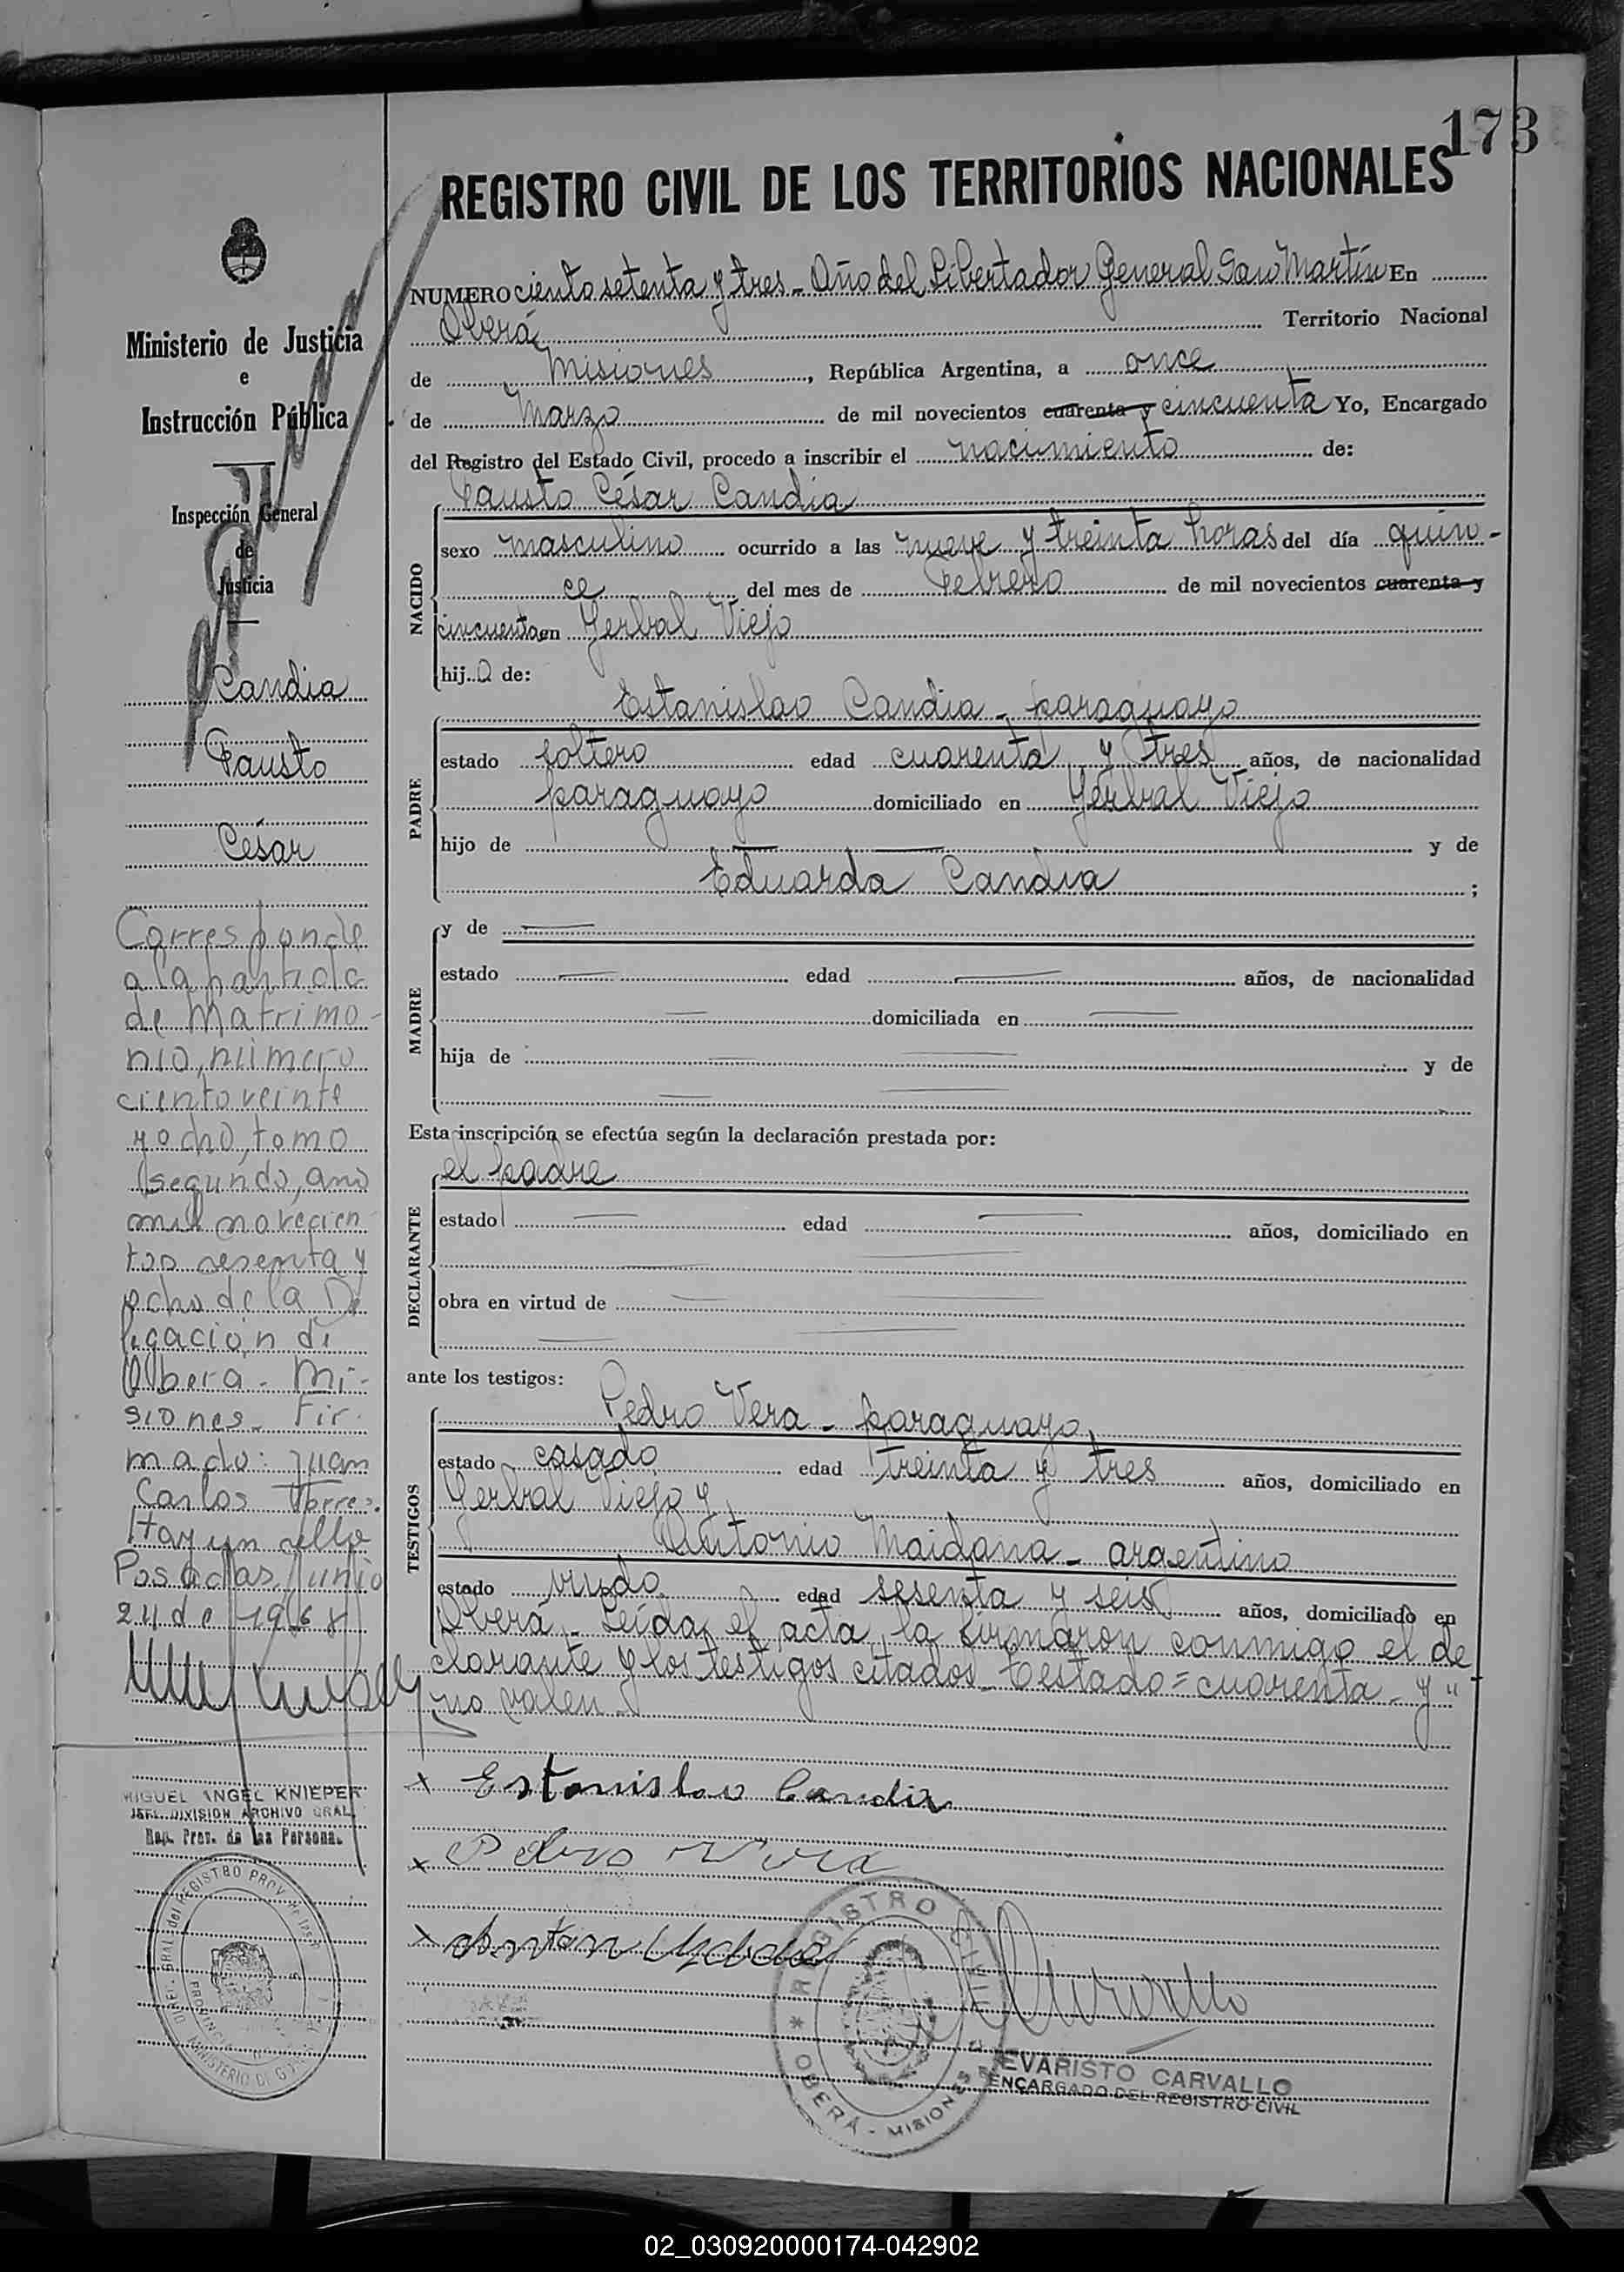 173
REGISTRO CIVIL DE LOS TERRITORIOS NACIONALES
NUMERO ciento setenta y tres - Año del Libertador General San Martín En
Oberá Territorio Nacional
de Misiones, República Argentina, a once
de Marzo de mil novecientos cuarenta y cincuenta Yo, Encargado
del Registro del Estado Civil, procedo a inscribir el nacimiento de:
Fausto César Candia
NACIDO
sexo masculino ocurrido a las nueve y treinta horas del día quin-
ce del mes de Febrero de mil novecientos cuarenta y
cincuenta en Yerbal Viejo
hijo de:
Estanislao Candia - paraguayo
PADRE
estado soltero edad cuarenta y tres años, de nacionalidad
paraguayo domiciliado en Yerbal Viejo
hijo de y de
Eduarda Candia ;
MADRE
y de
estado edad años, de nacionalidad
domiciliada en
hija de y de
Esta inscripción se efectúa según la declaración prestada por:
el padre
DECLARANTE
estado edad años, domiciliado en
obra en virtud de
ante los testigos:
Pedro Vera - paraguayo,
TESTIGOS
estado casado edad treinta y tres años, domiciliado en
Yerbal Viejo y
Antonio Maidana - argentino
estado viudo edad sesenta y seis años, domiciliado en
Oberá - Leída el acta, la firmaron conmigo el de
clarante y los testigos citados - Testado = cuarenta - y "
no valen -
x Estanislao Candia
x Pedro Vera
x
REGISTRO CIVIL
* OBERÁ - MISIONES
EVARISTO CARVALLO
ENCARGADO DEL REGISTRO CIVIL
Ministerio de Justicia
e
Instrucción Pública
Inspección General
de
Justicia
Candia
Fausto
César
Corresponde
a la partida
de Matrimo-
nio, número
ciento veinte
y ocho, tomo
segundo, año
mil novecien
tos sesenta y
ocho de la De
legación de
Oberá - Mi-
siones - Fir
mado: Juan
Carlos Torres.
Hay un sello
Posadas, Junio
24 de 1968
MIGUEL ANGEL KNIEPER
JEFE DIVISION ARCHIVO GRAL.
Reg. Prov. de las Personas
02_030920000174-042902